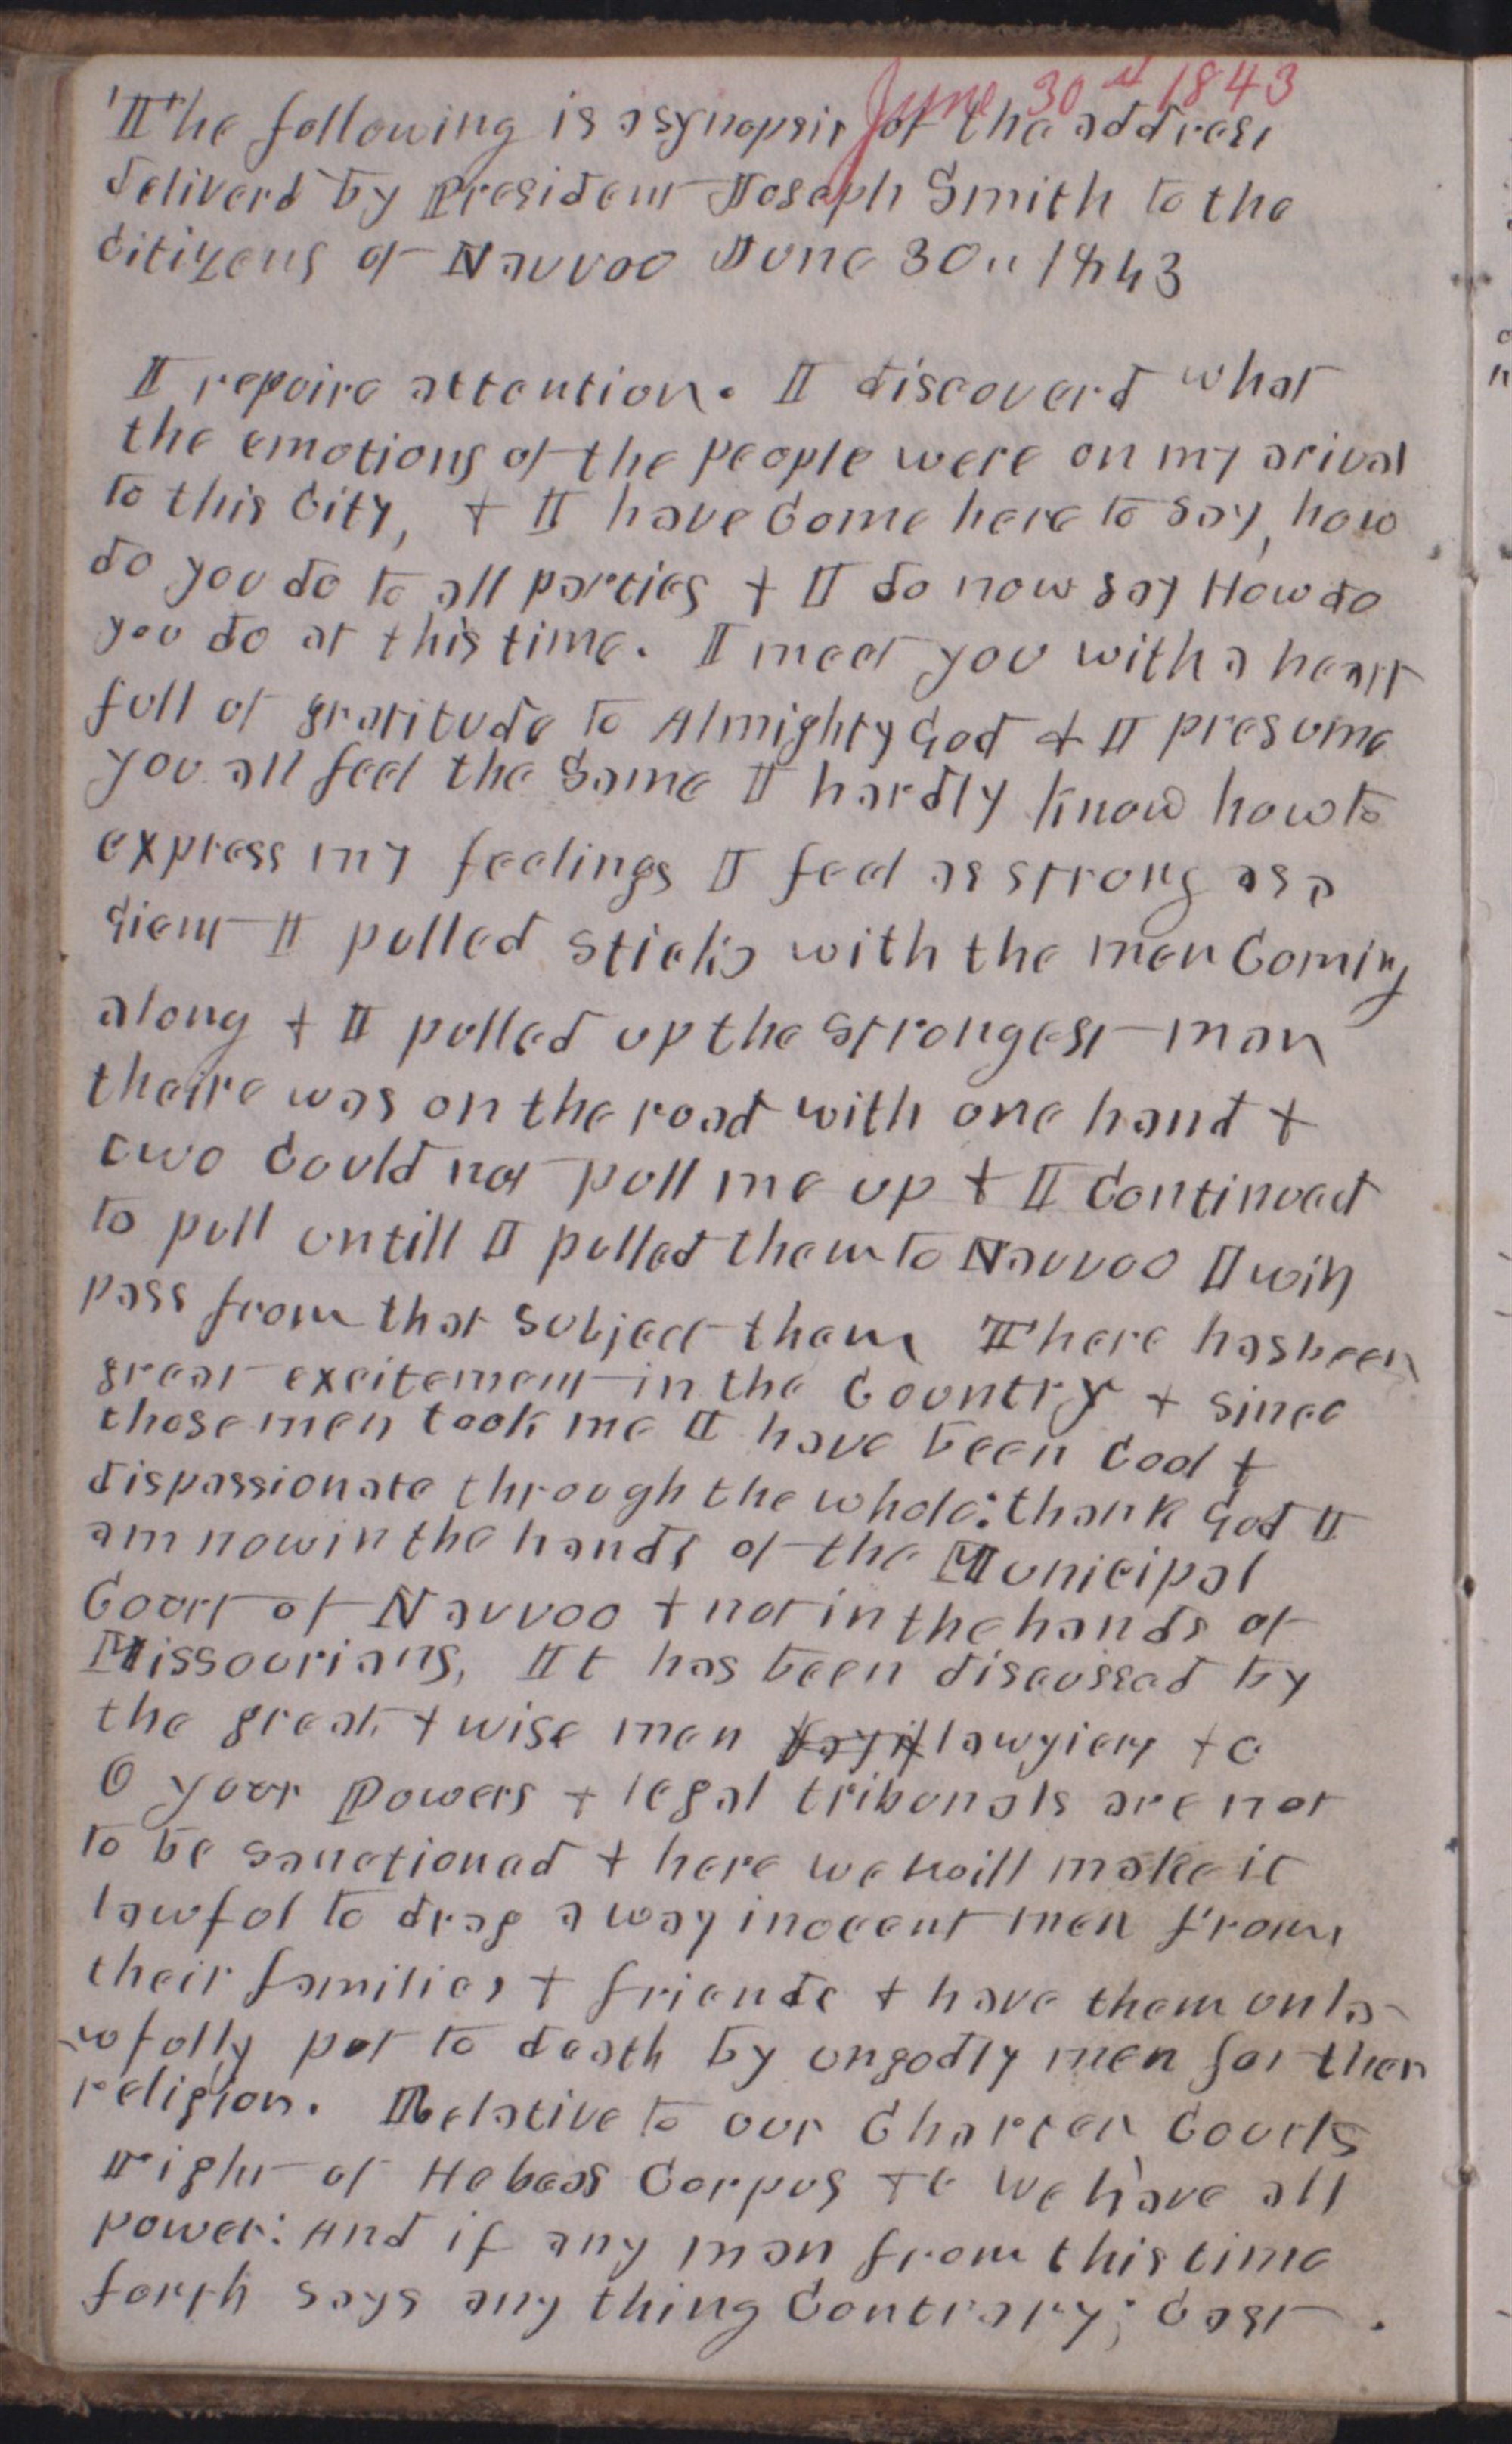 June 30th 1843
The following is a synopsis of the address
deliverd by President Joseph Smith to the
Citizens of Nauvoo June 30th 1843
I require attention. I discoverd what
the emotions of the people were on my arival
to this City, & I have Come here to say, how
do you do to all parties & I do now say How do
you do at this time. I meet you with a heart
full of gratitude to Almighty God & I presume
you all feel the Same I hardly know how to
express my feelings I feel as strong as a
Gient I pulled Sticks with the men Coming
along & I pulled up the Strongest man
theire was on the road with one hand &
two Could not pull me up & I Continued
to pull untill I pulled them to Nauvoo I will
pass from that Subject them There has been
great excitement in the Country & since
those men took me I have been Cool &
dispassionate through the whole: thank God I
am now in the hands of the Municipal
Court of Nauvoo & not in the hands of
Missourians, It has been discussed by
the great & wise men lawyiers &c
O your Powers & legal tribunals are not
to be sanctioned & here we will make it
lawful to drag away inocent men from
their families & friends & have them unla-
-wfully put to death by ungodly men for ther
religion. Relative to our Charter Courts
Right of Habeas Corpus &c We have all
power: And if any man from this time
forth says any thing Contrary; Cast.